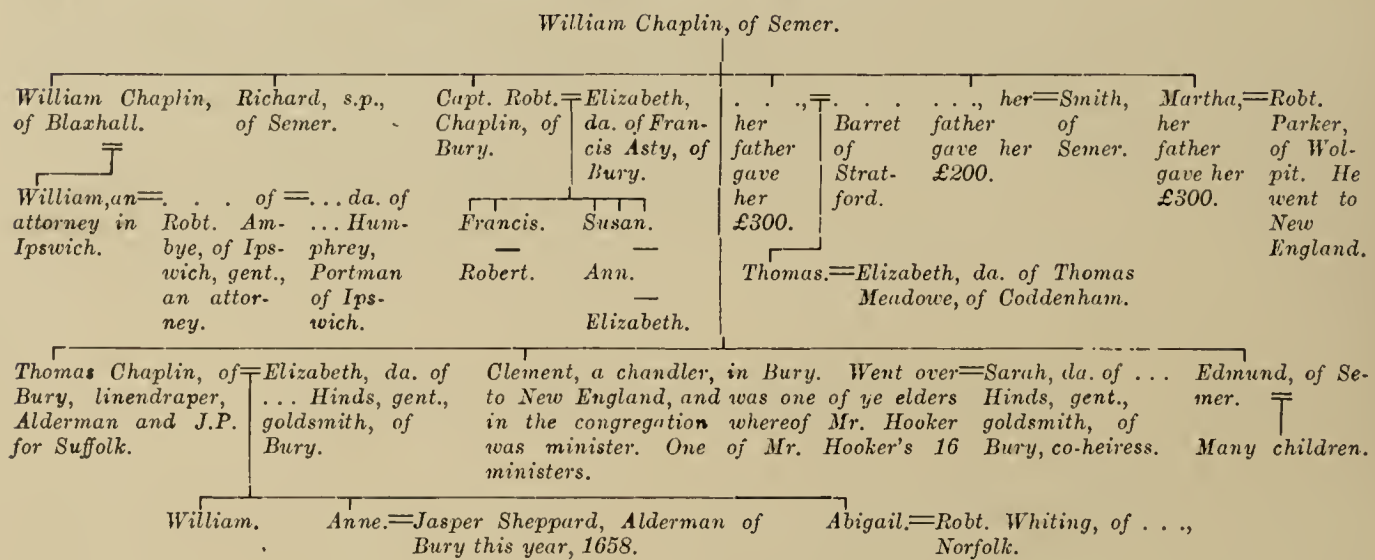 William Chaplin, of Semer.
William Chaplin, of Blaxhall.
Richard, s.p., of Semer.
Capt. Robt. Chaplin, of Bury. = Elizabeth, da. of Francis Asty, of Bury.
. . ., her father gave her £300. = . . . Barret of Stratford.
. . ., her father gave her £200. = Smith, of Semer.
Martha, her father gave her £300. = Robt. Parker, of Wolpit. He went to New England.
William, an attorney in Ipswich. = . . . of Robt. Ambye, of Ipswich, gent., an attorney. = ... da. of ... Humphrey, Portman of Ipswich.
Francis.
—
Robert.
Susan.
—
Ann.
—
Elizabeth.
Thomas. = Elizabeth, da. of Thomas Meadowe, of Coddenham.
Thomas Chaplin, of Bury, linendraper, Alderman and J.P. for Suffolk. = Elizabeth, da. of ... Hinds, gent., goldsmith, of Bury.
Clement, a chandler, in Bury. Went over to New England, and was one of ye elders in the congregation whereof Mr. Hooker was minister. One of Mr. Hooker's 16 ministers. = Sarah, da. of ... Hinds, gent., goldsmith, of Bury, co-heiress.
Edmund, of Semer.
Many children.
William.
Anne. = Jasper Sheppard, Alderman of Bury this year, 1658.
Abigail. = Robt. Whiting, of . . ., Norfolk.